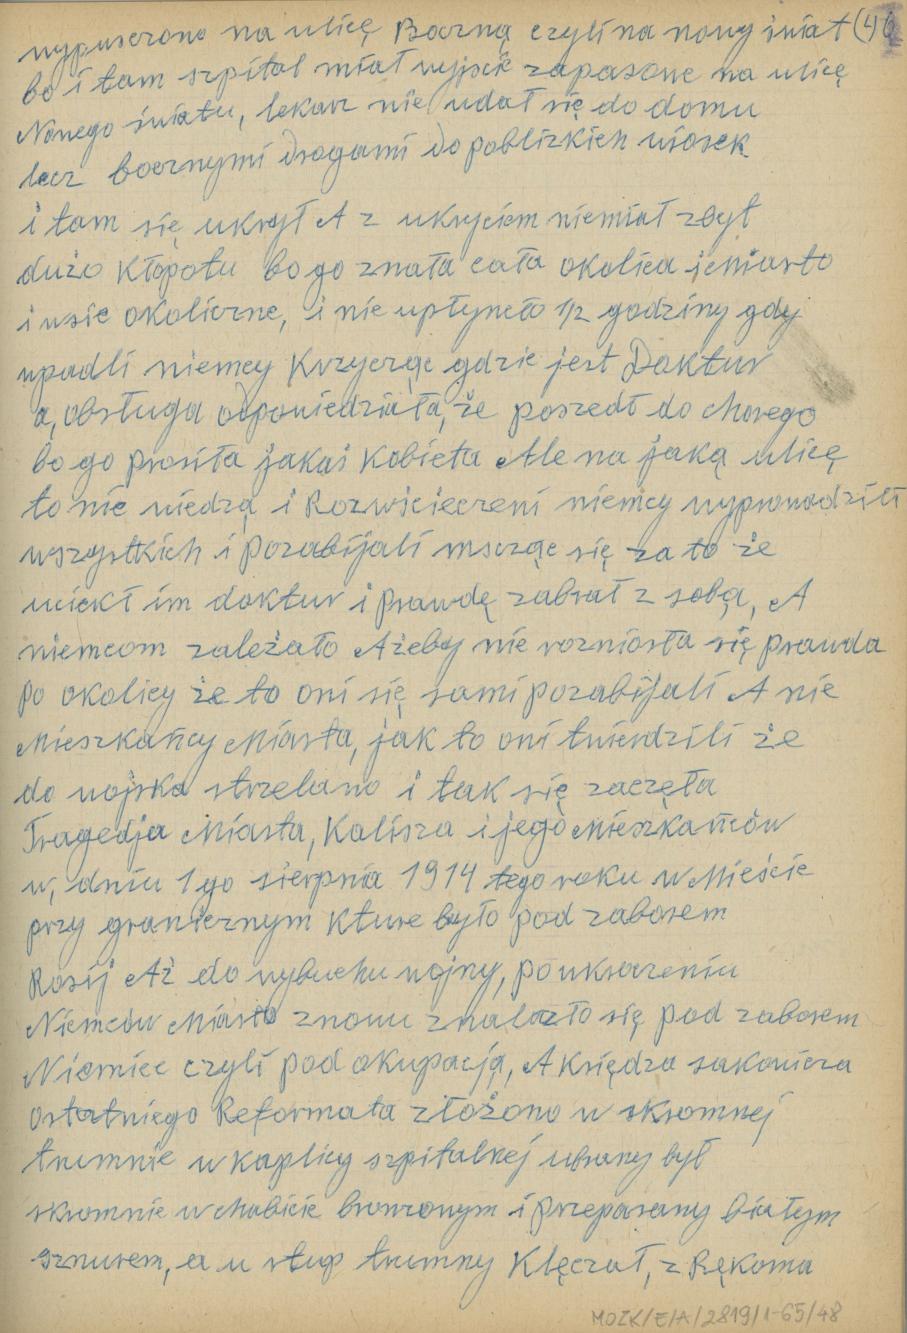 wypuszczono na ulicę Boczną czyli na nowy świat (46
bo i tam szpital miał wyjście zapasowe na ulicę
Nowego światu, lekarz nie udał się do domu
lecz bocznymi drogami do poblizkich wiosek
i tam się ukrył A z ukryciem niemiał zbyt
dużo Kłopotu bo go znała cała okolica i miasto
i wsie okoliczne, i nie upłyneło 1/2 godziny gdy
wpadli niemcy Krzycząc gdzie jest Doktur
a, obsługa odpowiedziała, że poszedł do chorego
bo go prosiła jakaś Kobieta Ale na jaką ulicę
to nie wiedzą i Rozwścieczeni niemcy wyprowadzili
wszystkich i pozabijali mszcząc się za to że
uciekł im doktur i prawdę zabrał z sobą, A
niemcom zależało Ażeby nie rozniosła się prawda
po okolicy że to oni się sami pozabijali A nie
Mieszkańcy Miasta, jak to oni twierdzili że
do wojska strzelano i tak się zaczęła
Tragedja Miasta, Kalisza i jego Mieszkańców
w, dniu 1go sierpnia 1914 tego roku w Mieście
przy granicznym Kture było pod zaborem
Rosij Aż do wybuchu wojny, po wkroczeniu
Niemców Miasto znowu znalazło się pod zaborem
Niemiec czyli pod okupacją, A Księdza zakonicza
ostatniego Reformata złożono w skromnej
trumnie w kaplicy szpitalnej ubrany był
skromnie w chabicie bronzonym i przepasany białym
sznurem, a u stup trumny Klęczał, z Rękoma
MOZK/E/A/2819/1-65/48